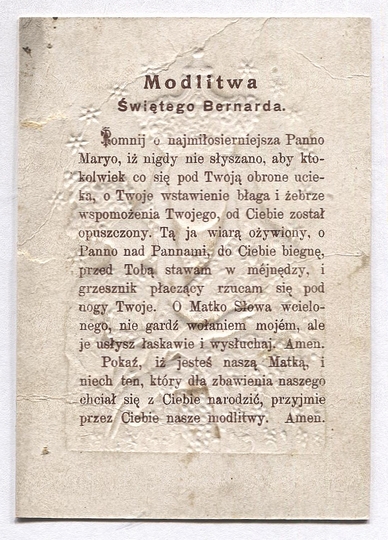 Modlitwa
Świętego Bernarda.
Pomnij o najmiłosierniejsza Panno
Maryo, iż nigdy nie słyszano, aby kto-
kolwiek co się pod Twóją obrone ucie-
ka, o Twoje wstawienie błaga i żebrze
wspomożenia Twojego, od Ciebie został
opuszczony. Tą ja wiarą ożywiony, o
Panno nad Pannami, do Ciebie biegnę,
przed Tobą stawam w mėjnędzy, i
grzesznik płaczący rzucam się pod
nogy Twoje. O Matko Słowa wcielo-
nego, nie gardź wołaniem mojém, ale
je usłysz łaskawie i wysłuchaj. Amen.
Pokaź, iż jesteś naszą Matką, i
niech ten, który dla zbawienia naszego
chciał się z Ciebie narodzić, przyjmie
przez Ciebie nasze modlitwy. Amen.